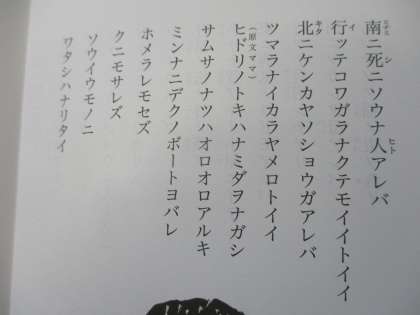 南ニ死ニソウナ人アレバ
行ッテコワガラナクテモイイトイイ
北ニケンカヤソショウガアレバ
ツマラナイカラヤメロトイイ
(原文ママ)
ヒドリノトキハナミダヲナガシ
サムサノナツハオロオロアルキ
ミンナニデクノボートヨバレ
ホメラレモセズ
クニモサレズ
ソウイウモノニ
ワタシハナリタイ